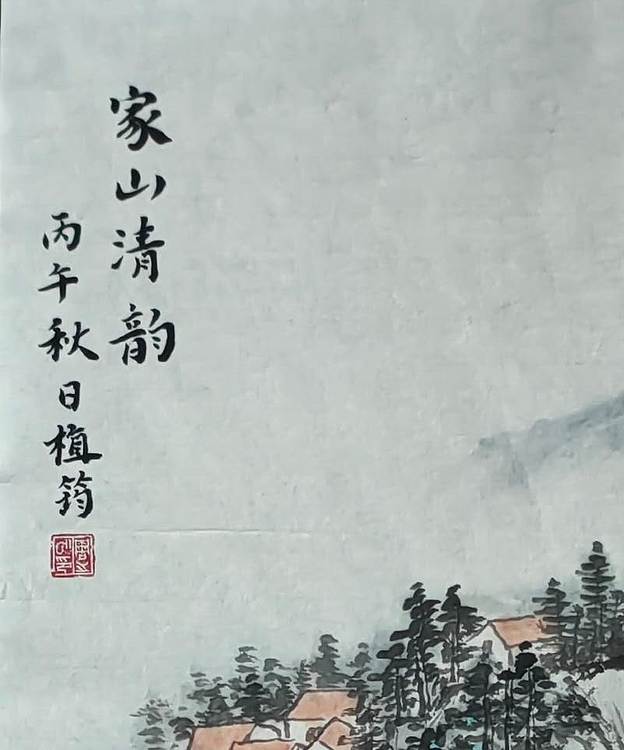 家山清韵
丙午秋日植筠